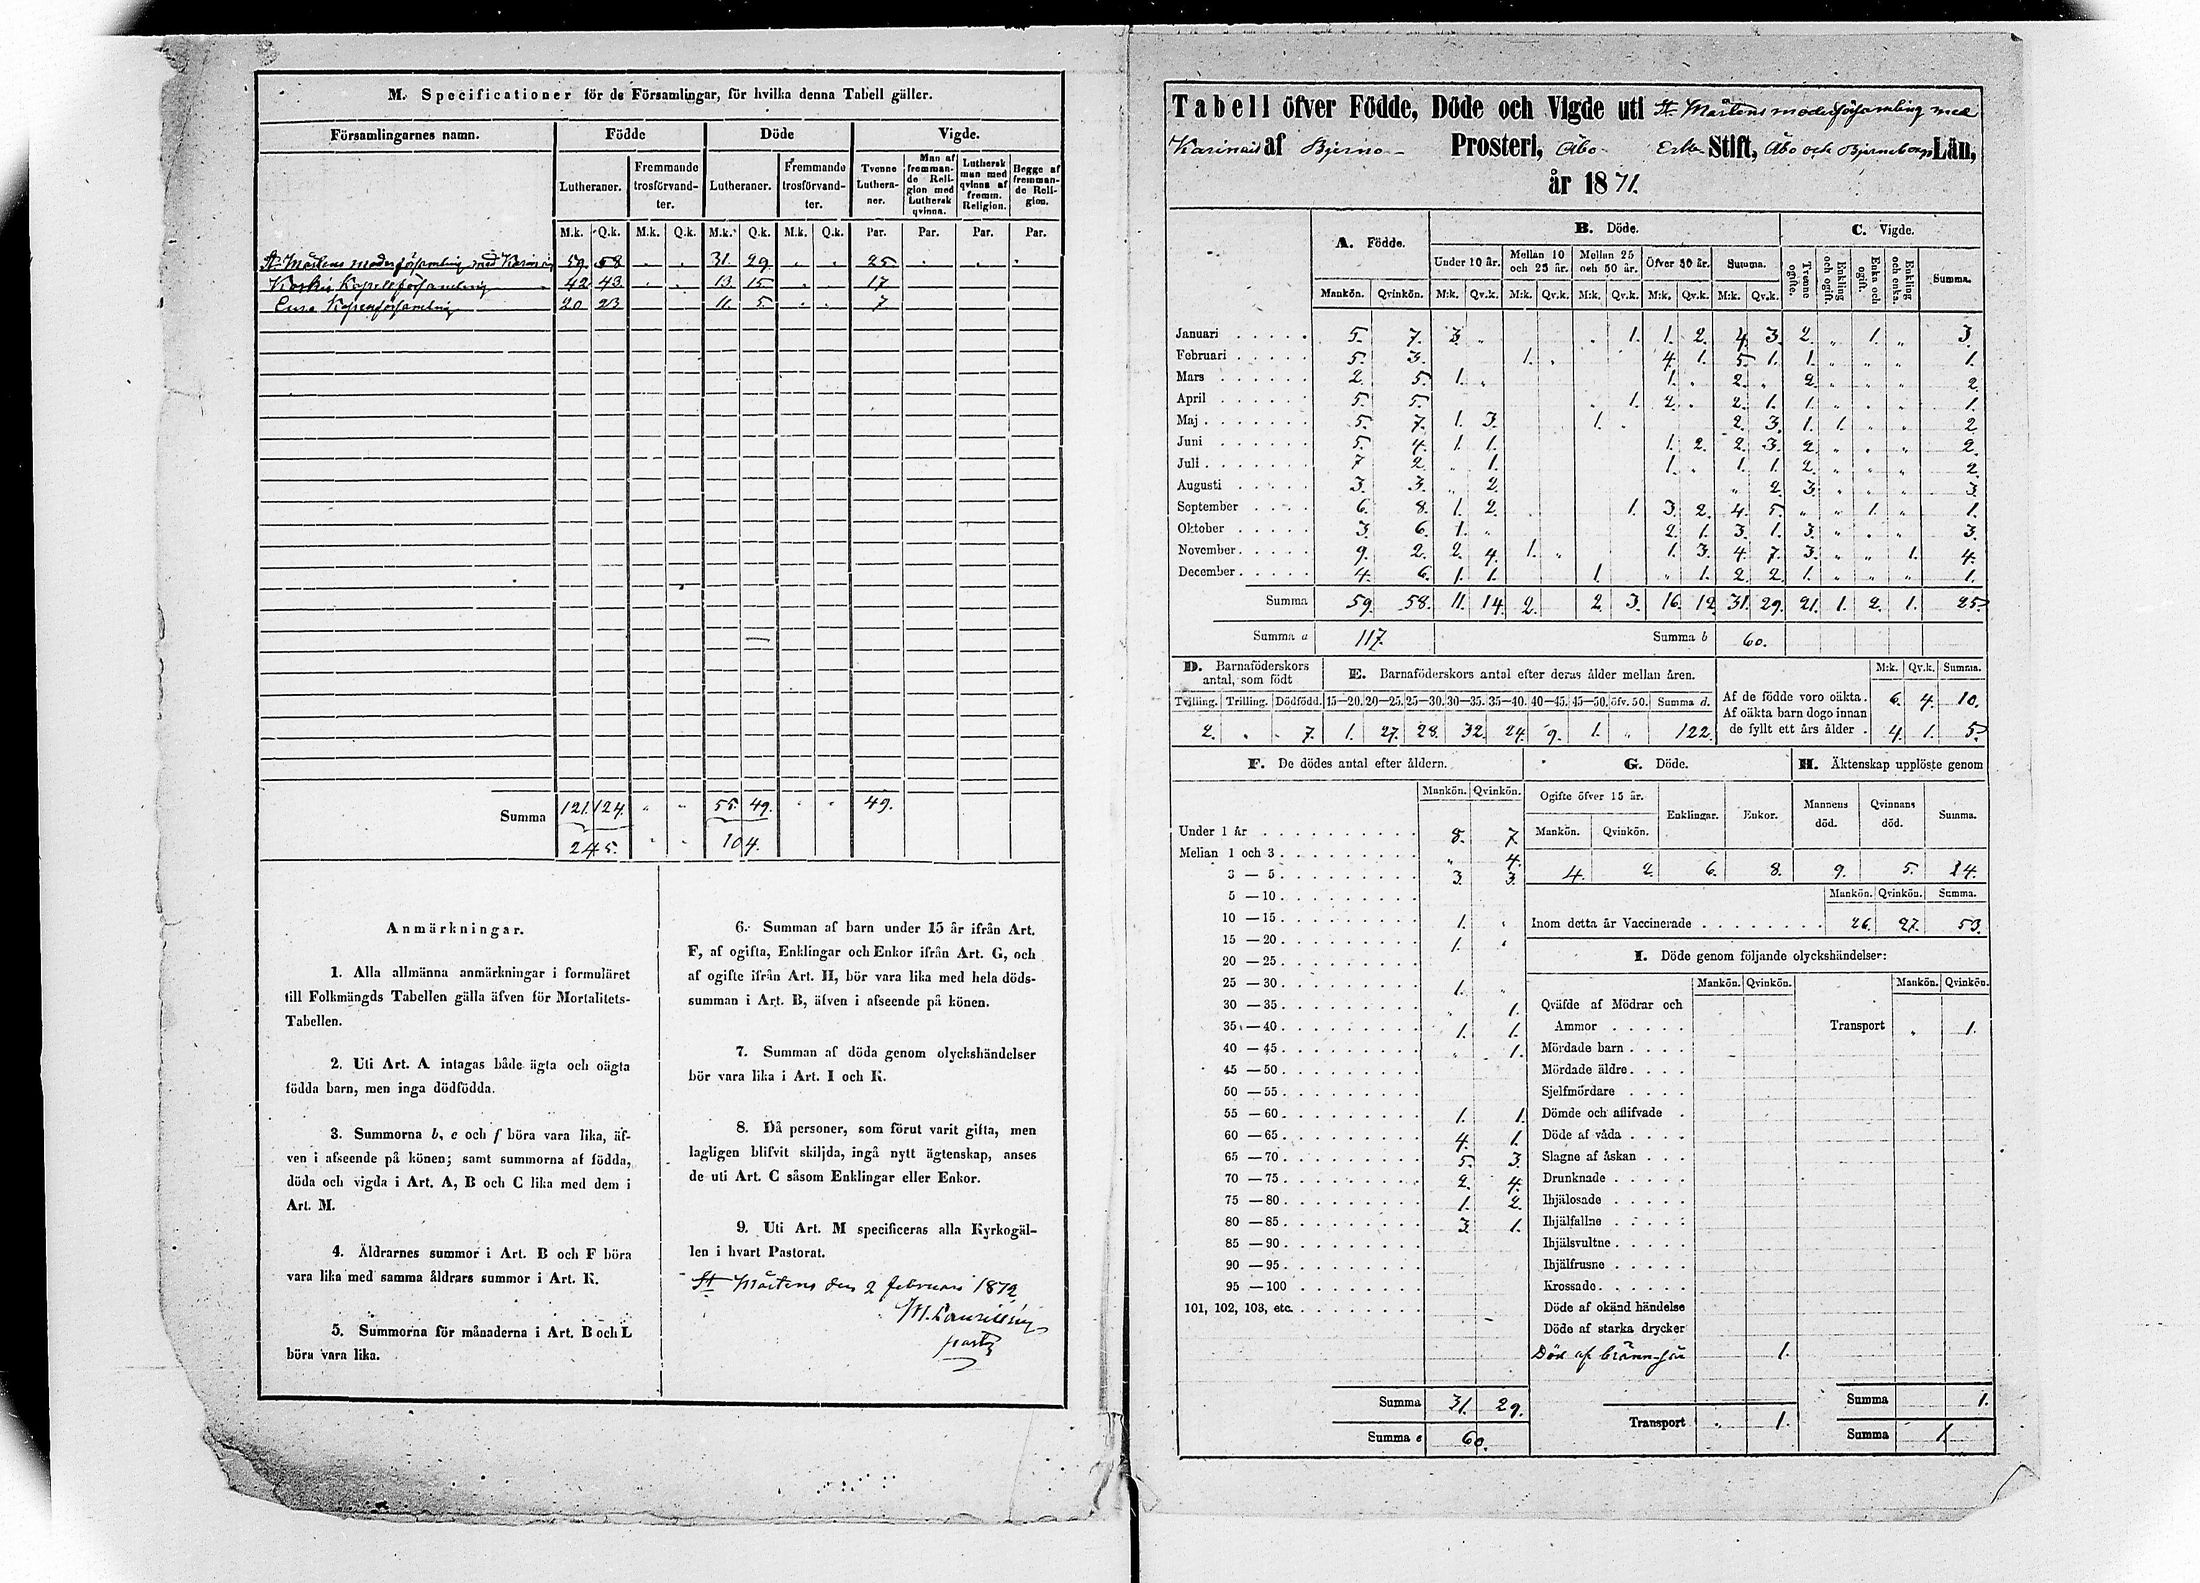 M. Specificationer för de Församlingar, för hvilka denna Tabell gäller.
Församlingarnes namn. Födde Döde Vigde.
Lutheraner. Fremmande trosförvandter. Lutheraner. Fremmande trosförvandter. Tvenne Lutheraner. Man af fremmande Religion med Luthersk qvinna. Luthersk man med qvinna af fremm. Religion. Begge af fremmande Religion.
M.k. Q.k. M.k. Q.k. M.k. Q.k. M.k. Q.k. Par. Par. Par. Par.
St Mårtens moderförsamling med Karinais 59. 58 . . 31. 29. . . 25 . . .
Koskis Kapellförsamling 42 43. . . 13. 15 . 17
Eura Kapellförsamling 20 23 11. 5. . . 7.
Summa 121. 124. " " 55. 49. " " 49.
245. " " 104.
Anmärkningar.
1. Alla allmänna anmärkningar i formuläret
till Folkmängds Tabellen gälla äfven för Mortalitets-
Tabellen.
2. Uti Art. A intagas både ägta och oägta
födda barn, men inga dödfödda.
3. Summorna b, e och f böra vara lika, äf-
ven i afseende på könen; samt summorna af födda,
döda och vigda i Art. A, B och C lika med dem i
Art. M.
4. Åldrarnes summor i Art. B och F böra
vara lika med samma åldrars summor i Art. K.
5. Summorna för månaderna i Art. B och L
böra vara lika.
6. Summan af barn under 15 år ifrån Art.
F, af ogifta, Enklingar och Enkor ifrån Art. G, och
af ogifte ifrån Art. H, bör vara lika med hela döds-
summan i Art. B, äfven i afseende på könen.
7. Summan af döda genom olyckshändelser
bör vara lika i Art. I och K.
8. Då personer, som förut varit gifta, men
lagligen blifvit skiljda, ingå nytt ägtenskap, anses
de uti Art. C såsom Enklingar eller Enkor.
9. Uti Art. M specificeras alla Kyrkogäl-
len i hvart Pastorat.
St Mårtens den 2 februari 1872
Tabell öfver Födde, Döde och Vigde uti St Mårtens moderförsamling med
Karinais af Bjerno Prosteri, Åbo Erke Stift, Åbo och Björneborgs Län,
år 1871.
A. Födde. B. Döde. C. Vigde.
Under 10 år. Mellan 10 och 25 år. Mellan 25 och 50 år. Öfver 50 år. Summa. Tvenne ogifte. Enkling och ogift. Enka och ogift. Enkling och enka. Summa.
Mankön. Qvinkön. M:k. Qv.k. M:k. Qv.k. M:k. Qv.k. M:k. Qv.k. M:k. Qv.k.
Januari 5. 7. 3. " . 1. 1. 2. 4. 3. 2. " 1. " 3.
Februari 5. 3. 1. . 4. 1. 5. 1. 1. " " " 1.
Mars 2. 5. 1. " 1. " 2. " 2. " " " 2.
April 5. 5. " 1. 2. " 2. 1. 1. " " " 1.
Maj 5. 7. 1. 3. 1. . 2. 3. 1. 1. " " 2
Juni 5. 4. 1. 1. 1. 2. 2. 3. 2. " " " 2.
Juli 7 2. " 1. 1. " 1. 1. 2. " " " 2.
Augusti 3. 3. " 2. " 2. 3. " " " 3.
September 6. 8. 1. 2. 1. 3. 2. 4. 5. " " 1. " 1.
Oktober 3. 6. 1. " 2. 1. 3. 1. 3. " " " 3.
November 9. 2. 2. 4. 1. " 1. 3. 4. 7. 3. " " 1. 4.
December 4. 6. 1. 1. 1. " 1. 2. 2. 1. " " " 1.
Summa 59. 58. 11. 14. 2. 2. 3. 16. 12. 31. 29. 21. 1. 2. 1. 25.
Summa a 117. Summa b 60.
D. Barnaföderskors antal, som födt
Tvilling. Trilling. Dödfödd.
2. . . 7.
E. Barnaföderskors antal efter deras ålder mellan åren.
15—20. 20—25. 25—30. 30—35. 35—40. 40—45. 45—50. öfv. 50. Summa d.
1. 27. 28. 32. 24. 9. 1. " 122.
M:k. Qv.k. Summa.
Af de födde voro oäkta. 6. 4. 10.
Af oäkta barn dogo innan
de fyllt ett års ålder. 4. 1. 5.
F. De dödes antal efter åldern.
Mankön. Qvinkön.
Under 1 år 8. 7.
Mellan 1 och 3 " 4.
3 — 5 3. 3.
5 — 10
10 — 15 1. "
15 — 20 1. "
20 — 25
25 — 30 1. "
30 — 35 " 1.
35 — 40 1. 1.
40 — 45 " 1.
45 — 50
50 — 55
55 — 60 1. 1.
60 — 65 4. 1.
65 — 70 5. 3.
70 — 75 2. 4.
75 — 80 1. 2.
80 — 85 3. 1.
85 — 90
90 — 95
95 — 100
101, 102, 103, etc.
Summa 31. 29.
Summa e 60.
G. Döde.
Ogifte öfver 15 år. Enklingar. Enkor.
Mankön. Qvinkön.
4. 2. 6. 8.
H. Äktenskap upplöste genom
Mannens död. Qvinnans död. Summa.
9. 5. 14.
Mankön. Qvinkön. Summa.
Inom detta år Vaccinerade 26. 27. 53.
I. Döde genom följande olyckshändelser:
Mankön. Qvinkön. Mankön. Qvinkön.
Qväfde af Mödrar och
Ammor Transport " 1.
Mördade barn
Mördade äldre
Sjelfmördare
Dömde och aflifvade
Döde af våda
Slagne af åskan
Drunknade
Ihjälosade
Ihjälfallne
Ihjälsvultne
Ihjälfrusne
Krossade
Döde af okänd händelse
Döde af starka drycker
Död af brännsår 1.
Summa 1.
Transport " 1.
Summa 1.